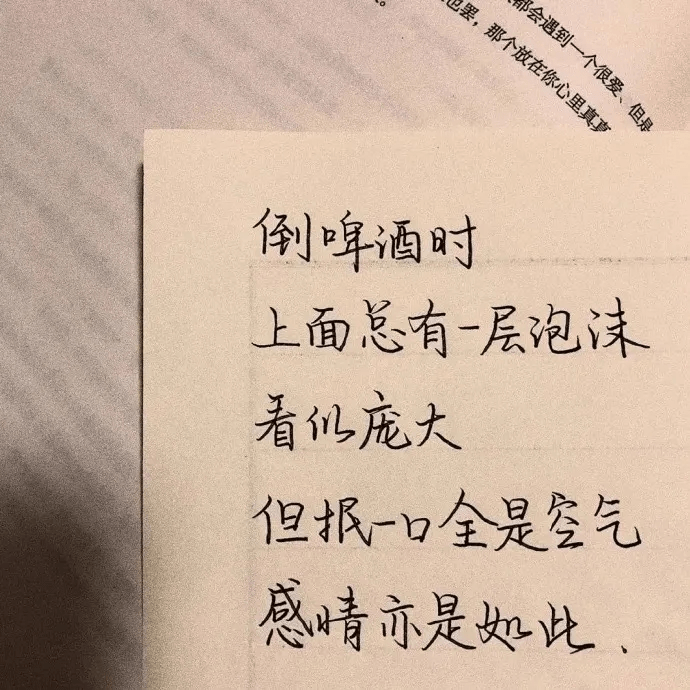 都会遇到一个很爱、但是
也罢，那个放在你心里真真
倒啤酒时
上面总有一层泡沫
看似庞大
但抿一口全是空气
感晴亦是如此、